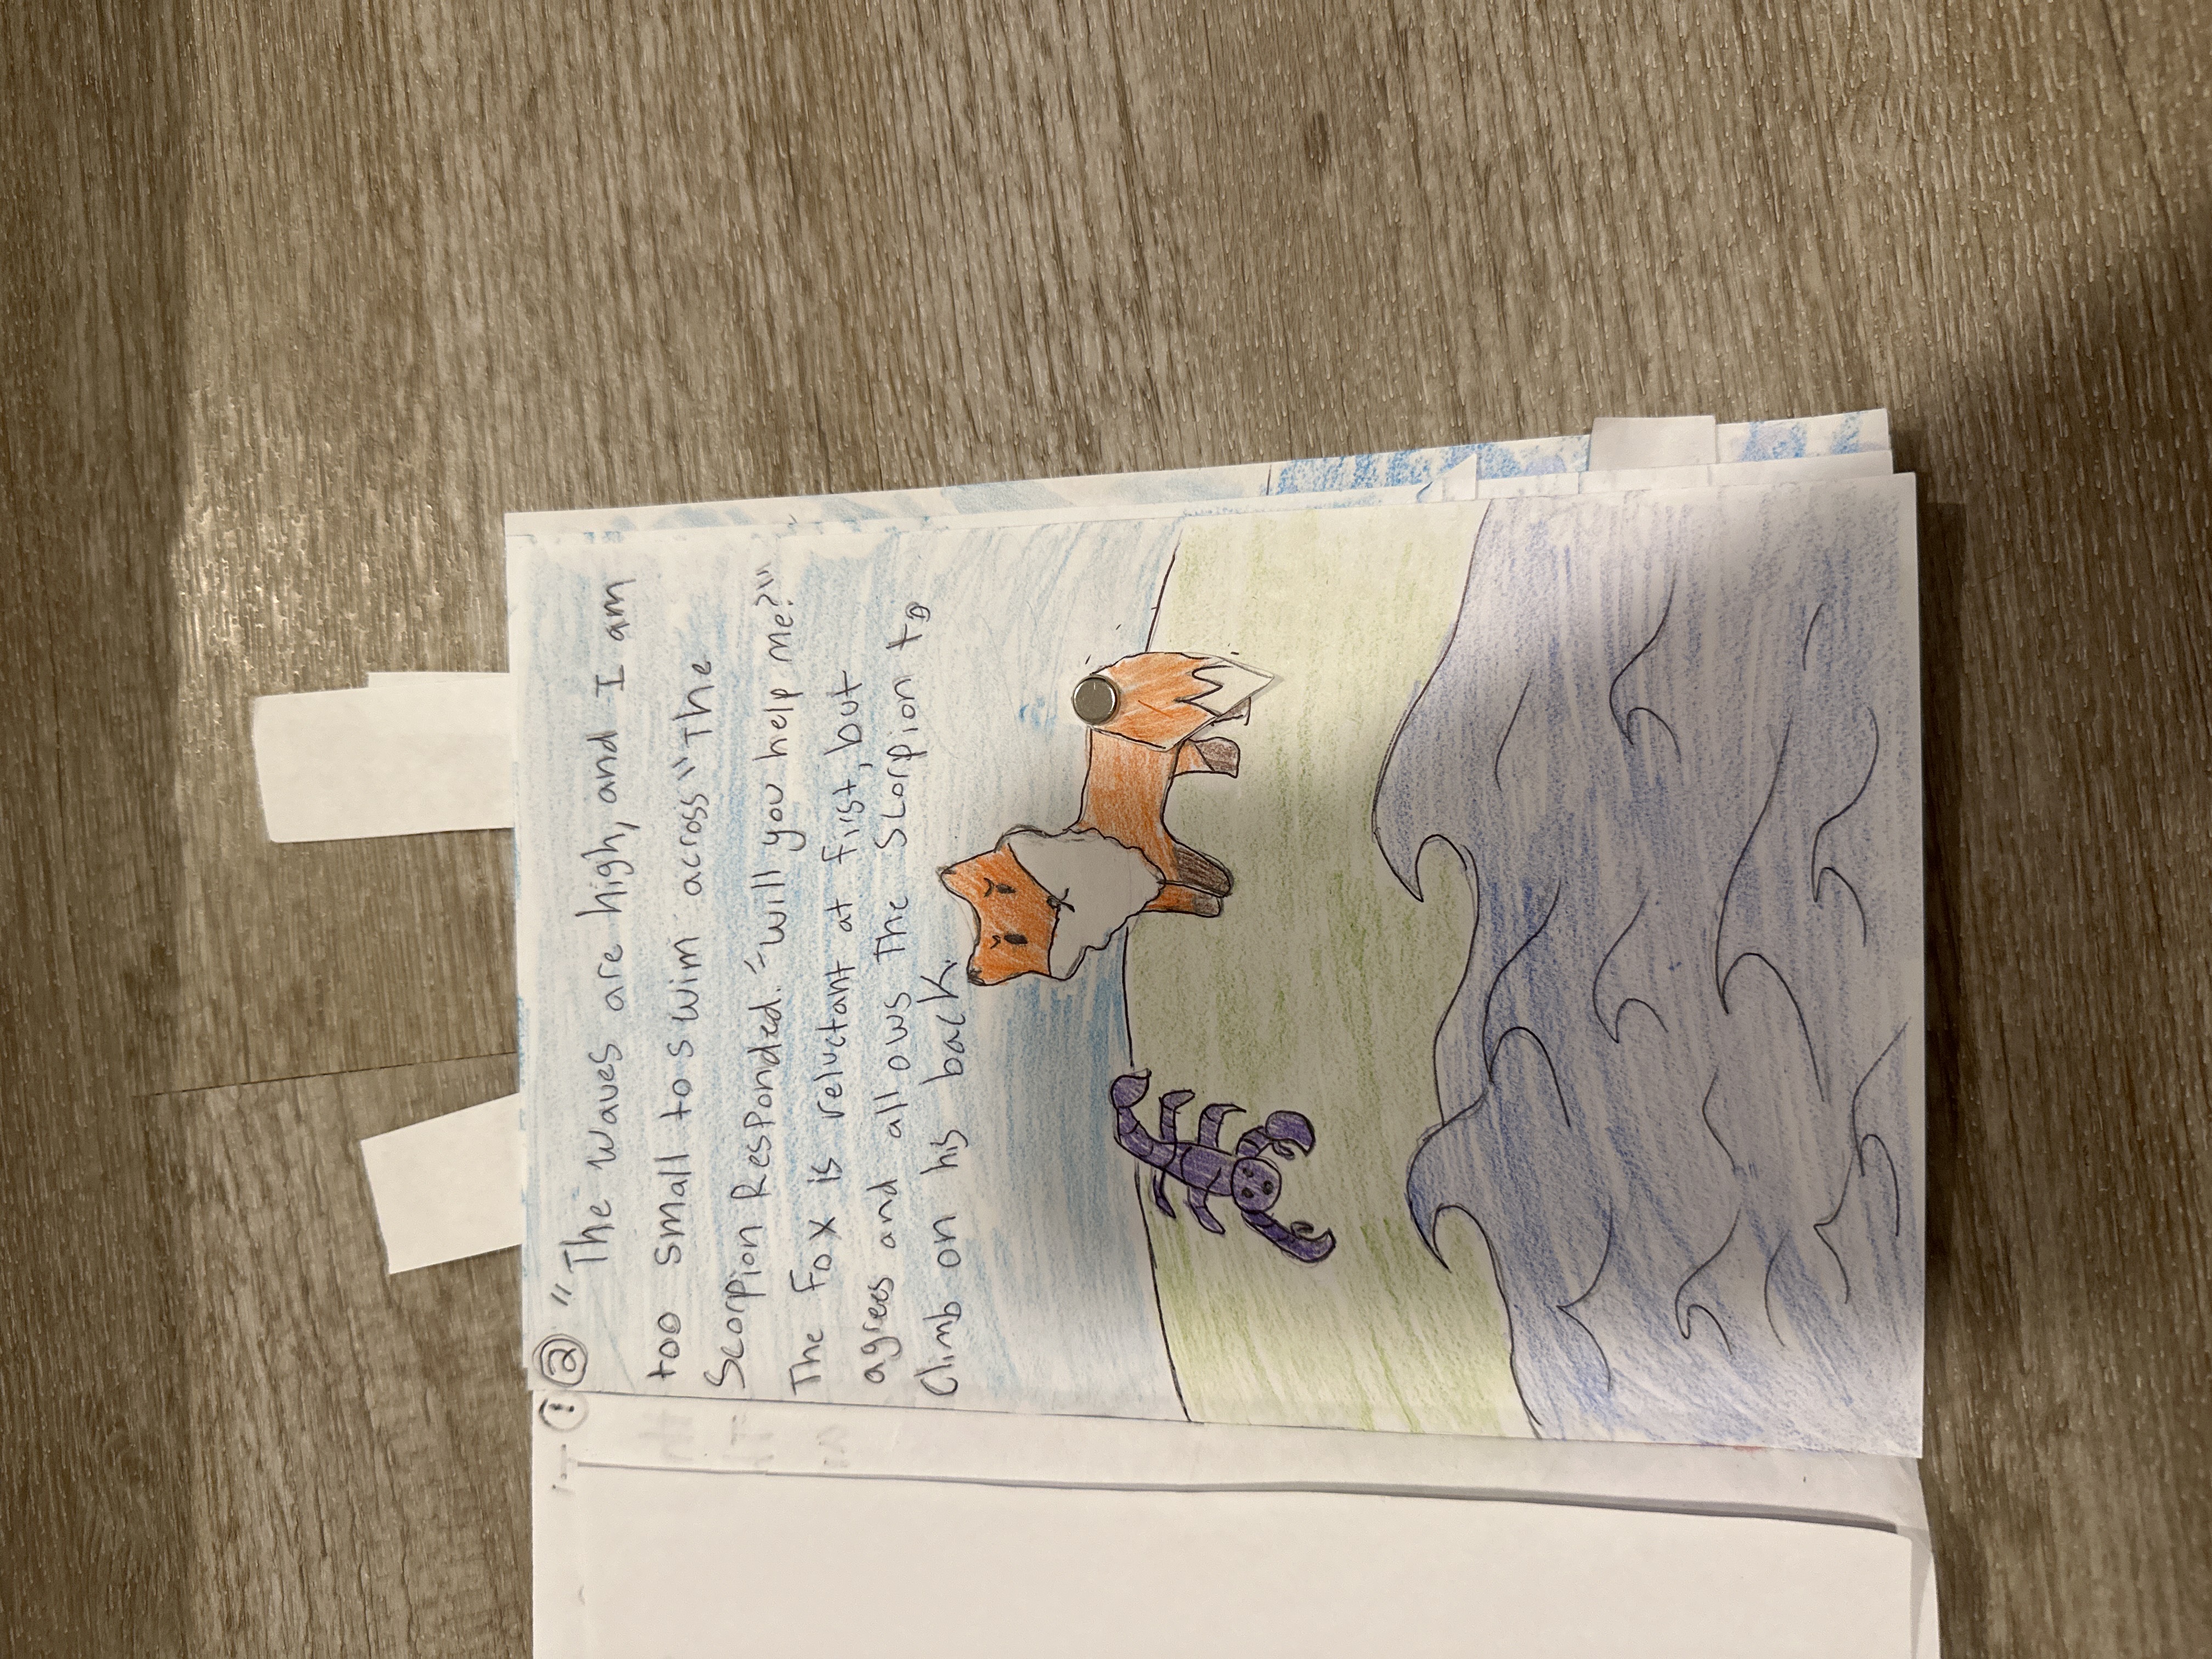 ② "The waves are high, and I am
too small to swim across" The
Scorpion Responded. "will you help me?"
The Fox is reluctant at first, but
agrees and allows The Scorpion to
Climb on his back.